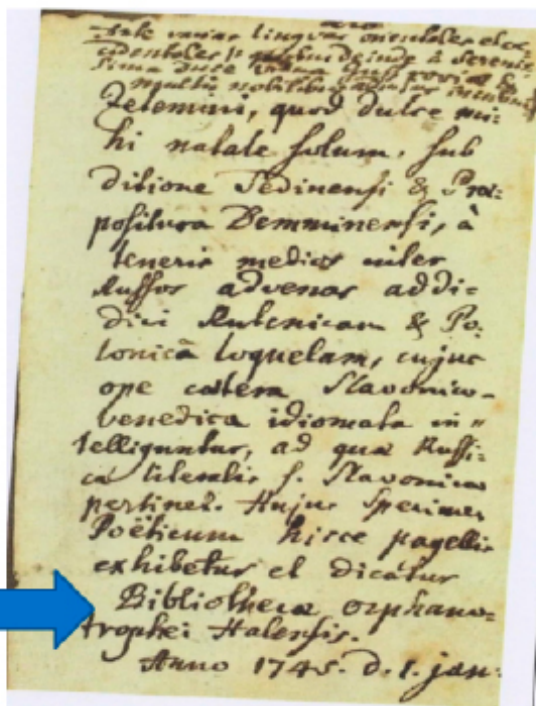 Ante varias linguas orientales et oc-
cidentales
multis nobilibus
Zelemini, quod dulce mi-
hi natale solum, sub
ditione Sedinensi & Præ-
positura Demminensi, à
teneris medios inter
Russos advenas addi-
dici Rutenicam & Po-
lonicã loquelam, cujus
ope cætera Slavonico-
venedica idiomata in-
telliguntur, ad quæ Russi-
ca literalis s. Slavonica
pertinet. Hujus Specimen
Poëticum hisce pagellis
exhibetur et dicatur
Bibliothecæ orphano-
trophei Halensis.
Anno 1745. d. 1. jan.